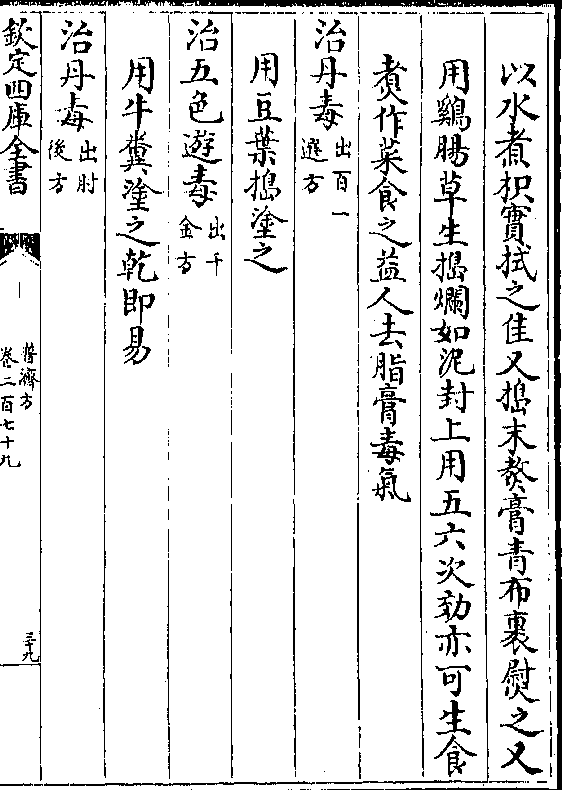 以水煮枳實拭之佳又搗末熬膏青布裹熨之又
用鷄腸草生搗爛如泥封上用五六次効亦可生食
煑作菜食之益人去脂膏毒氣
治丹毒出百一選方
用豆葉搗塗之
治五色遊毒出千金方
用牛糞塗之乾即易
治丹毒出肘後方
欽定四庫全書
普濟方
卷二百七十九
三十九